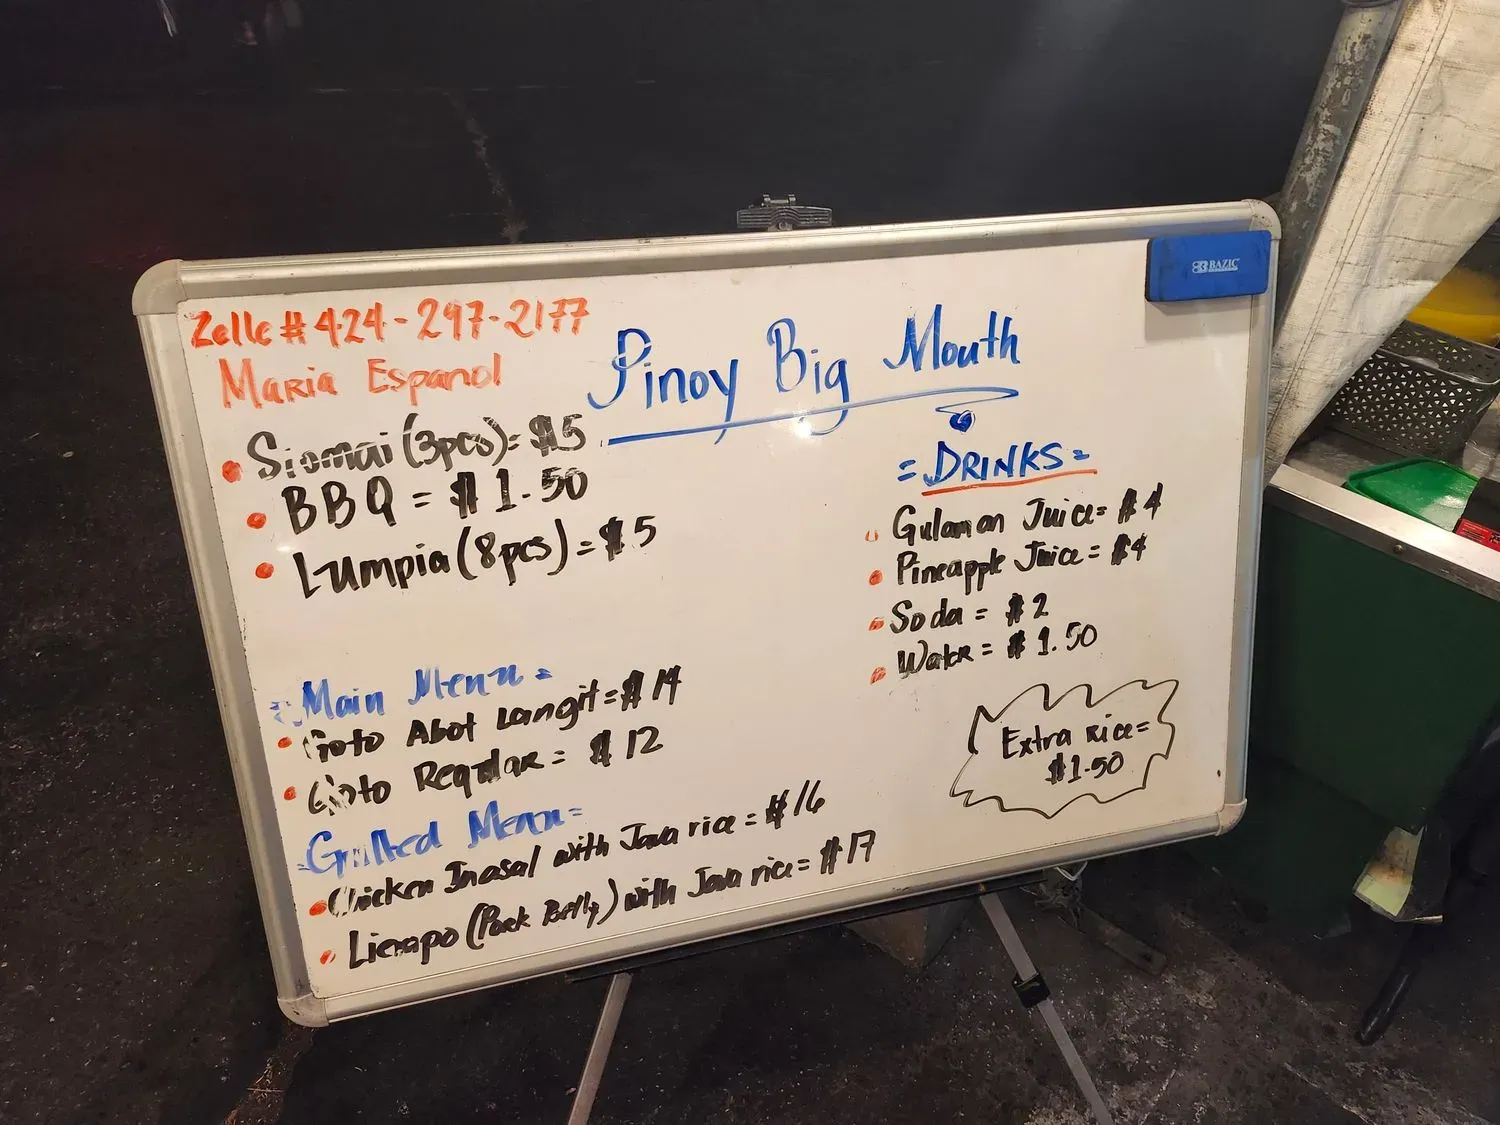 Zelle # 424-297-2177
Maria Espanol
Pinoy Big Mouth
Siomai (3pcs) = $5
BBQ = $1.50
Lumpia (8pcs) = $5
Main Menu =
Goto Abot Langit = $14
Goto Regular = $12
Grilled Menu =
Chicken Inasal with Java rice = $16
Liempo (Pork Belly) with Java rice = $17
= DRINKS =
Gulaman Juice = $4
Pineapple Juice = $4
Soda = $2
Water = $1.50
Extra rice =
$1.50
BAZIC